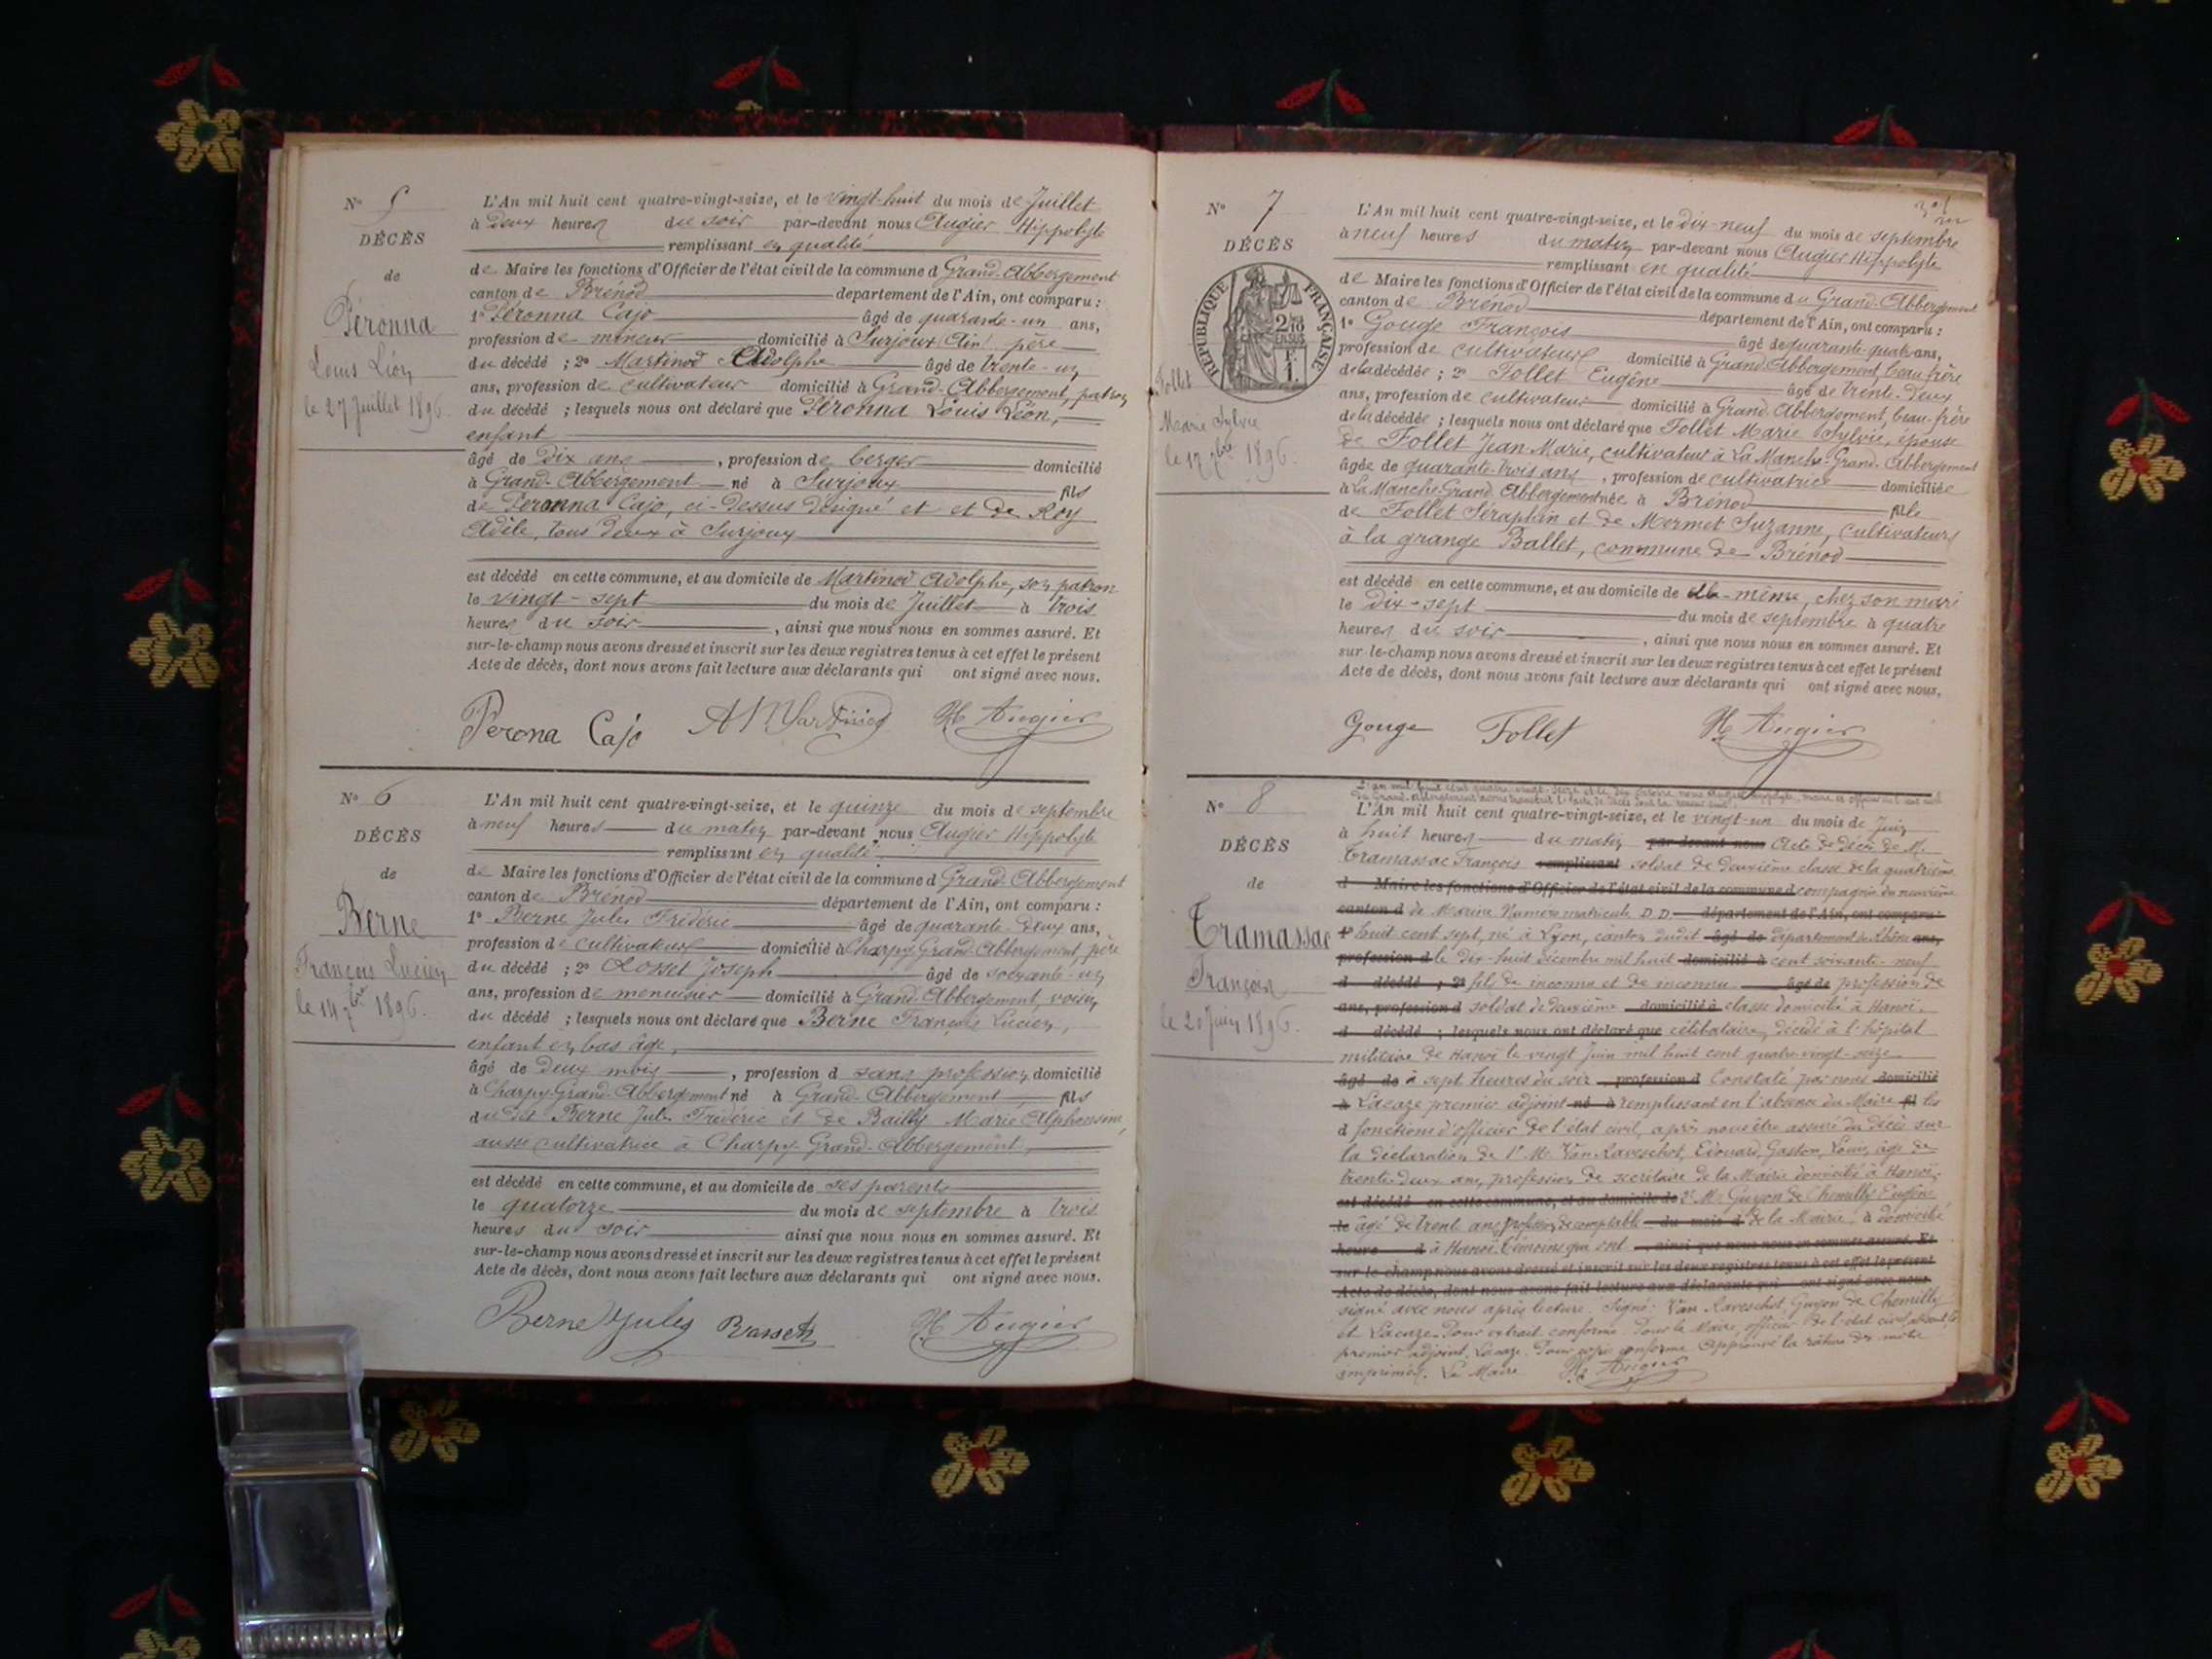 N° 5
DÉCÈS
de
Péronna
Louis Léon
le 27 Juillet 1896.
L'An mil huit cent quatre-vingt-seize, et le vingt-huit du mois de Juillet
à deux heures du soir par-devant nous Augier Hippolyte
remplissant en qualité
de Maire les fonctions d'Officier de l'état civil de la commune d Grand-Abbergement
canton de Brénod département de l'Ain, ont comparu :
1° Péronna Cajo âgé de quarante-un ans,
profession de mineur domicilié à Surjoux (Ain) père
du décédé ; 2° Martinod Adolphe âgé de trente-un
ans, profession de cultivateur domicilié à Grand-Abbergement, patron
du décédé ; lesquels nous ont déclaré que Péronna Louis Léon,
enfant
âgé de dix ans, profession de berger domicilié
à Grand-Abbergement né à Surjoux fils
de Peronna Cajo, ci-dessus désigné et et de Roy
Adèle, tous deux à Surjoux
est décédé en cette commune, et au domicile de Martinod Adolphe, son patron
le vingt-sept du mois de Juillet à trois
heures du soir, ainsi que nous nous en sommes assuré. Et
sur-le-champ nous avons dressé et inscrit sur les deux registres tenus à cet effet le présent
Acte de décès, dont nous avons fait lecture aux déclarants qui ont signé avec nous.
Perona Cajo A Martinod H Augier
N° 6
DÉCÈS
de
Berne
François Lucien
le 14 7bre 1896.
L'An mil huit cent quatre-vingt-seize, et le quinze du mois de septembre
à neuf heures du matin par-devant nous Augier Hippolyte
remplissant en qualité
de Maire les fonctions d'Officier de l'état civil de la commune d Grand-Abbergement
canton de Brénod département de l'Ain, ont comparu :
1° Berne Jules Frédéric âgé de quarante-deux ans,
profession de cultivateur domicilié à Charpy-Grand-Abbergement, père
du décédé ; 2° Joseph âgé de soixante-un
ans, profession de menuisier domicilié à Grand-Abbergement, voisin
du décédé ; lesquels nous ont déclaré que Berne François Lucien,
enfant en bas âge,
âgé de deux mois, profession d sans profession domicilié
à Charpy-Grand-Abbergement né à Grand-Abbergement, fils
du dit Berne Jules Frédéric et de Bailly Marie Alphonsine,
aussi cultivatrice à Charpy-Grand-Abbergement,
est décédé en cette commune, et au domicile de ses parents
le quatorze du mois de septembre à trois
heures du soir ainsi que nous nous en sommes assuré. Et
sur-le-champ nous avons dressé et inscrit sur les deux registres tenus à cet effet le présent
Acte de décès, dont nous avons fait lecture aux déclarants qui ont signé avec nous.
Berne Jules H Augier
N° 7
DÉCÈS
RÉPUBLIQUE FRANÇAISE
2/10 EN SUS
1 F.
Follet
Marie Sylvie
le 17 7bre 1896.
L'An mil huit cent quatre-vingt-seize, et le dix-neuf du mois de septembre
à neuf heures du matin par-devant nous Augier Hippolyte
remplissant en qualité
de Maire les fonctions d'Officier de l'état civil de la commune du Grand-Abbergement
canton de Brénod département de l'Ain, ont comparu :
1° Gouge François âgé de quarante-quatre ans,
profession de cultivateur domicilié à Grand-Abbergement, beau-frère
de la décédée ; 2° Follet Eugène âgé de trente-deux
ans, profession de cultivateur domicilié à Grand-Abbergement, beau-frère
de la décédée ; lesquels nous ont déclaré que Follet Marie Sylvie, épouse
de Follet Jean-Marie, cultivateur à La Manche-Grand-Abbergement
âgée de quarante-trois ans, profession de cultivatrice domiciliée
à La Manche-Grand-Abbergement née à Brénod fille
de Follet Séraphin et de Mermet Suzanne, cultivateurs
à la grange Ballet, commune de Brénod
est décédé en cette commune, et au domicile de elle-même, chez son mari
le dix-sept du mois de septembre à quatre
heures du soir, ainsi que nous nous en sommes assuré. Et
sur-le-champ nous avons dressé et inscrit sur les deux registres tenus à cet effet le présent
Acte de décès, dont nous avons fait lecture aux déclarants qui ont signé avec nous,
Gouge Follet H Augier
N° 8
DÉCÈS
de
Tramassac
François
le 20 Juin 1896.
L'an mil huit cent quatre-vingt-seize et le dix nous Augier Hippolyte, maire et officier de l'état civil
du Grand-Abbergement avons transcrit l'acte de décès dont la teneur suit
L'An mil huit cent quatre-vingt-seize, et le vingt-un du mois de Juin
à huit heures du matin par-devant nous Acte de décès de M.
Tramassac François remplissant soldat de deuxième classe de la quatrième
d Maire les fonctions d'Officier de l'état civil de la commune d compagnie du neuvième
canton d de Marine Numéro matricule D.D. département de l'Ain, ont comparu :
1° huit cent sept, né à Lyon, canton dudit âgé de département du Rhône ans,
profession d le dix-huit décembre mil huit domicilié à cent soixante-neuf
d décédé ; 2° fils de inconnu et de inconnue âgé de profession de
ans, profession d soldat de deuxième domicilié à classe domicilié à Hanoï.
d décédé ; lesquels nous ont déclaré que célibataire, décédé à l'hôpital
militaire de Hanoï le vingt Juin mil huit cent quatre-vingt-seize
âgé de à sept heures du soir profession d Constaté par nous domicilié
à Lacaze premier adjoint né à remplissant en l'absence du Maire fil les
d fonctions d'officier de l'état civil, après nous être assuré du décès sur
la déclaration de 1° M. Van Raveschot, Edouard, Gaston, Louis, âgé de
trente-deux ans, profession de secrétaire de la Mairie domicilié à Hanoï,
est décédé en cette commune, et au domicile de 2° M. Guyon de Chemilly Eugène
le âgé de trente ans profession de comptable du mois d de la Mairie, à domicilié
heure d à Hanoï. témoins qui ont , ainsi que nous nous en sommes assuré. Et
sur-le-champ nous avons dressé et inscrit sur les deux registres tenus à cet effet le présent
Acte de décès, dont nous avons fait lecture aux déclarants qui ont signé avec nous.
signé avec nous après lecture. Signé : Van Raveschot, Guyon de Chemilly
et Lacaze. Pour extrait conforme Pour le Maire officier de l'état civil absent, le
premier adjoint, Lacaze. Pour copie conforme Approuvé la râture des mots
imprimés. Le Maire H Augier